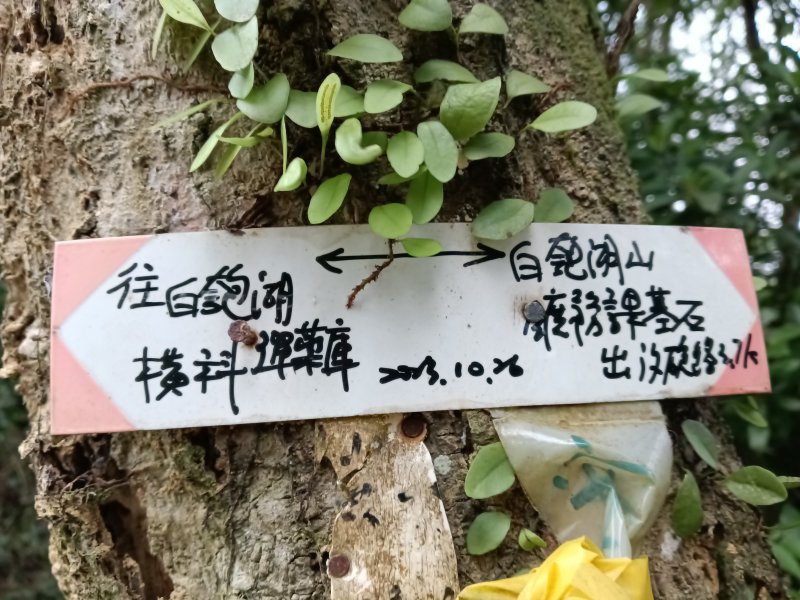 往白匏湖
橫科彈藥庫
2023.10.26
白匏湖山
廳務課基石
出汐碇路3.7K